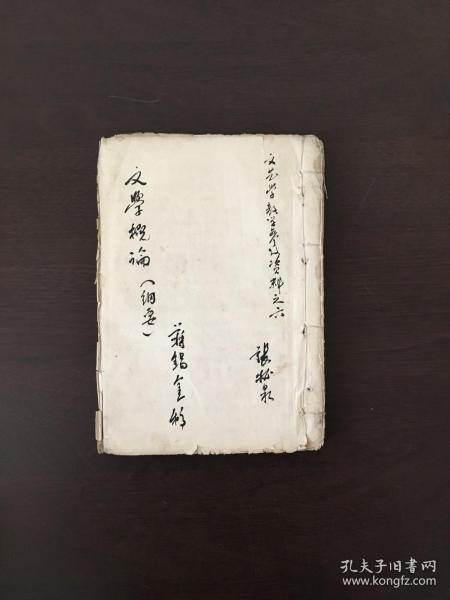 文艺学教学参考资料之六
張松泉
文學概論（綱要）
蔣錫金編
孔夫子旧书网
www.kongfz.com